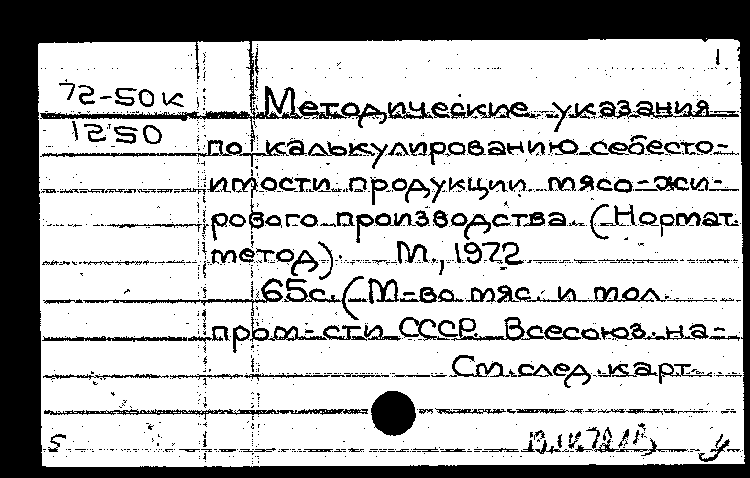 1
72-50к
1250
Методические указания
по калькулированию себесто-
имости продукции мясо-жи-
рового производства. (Нормат.
метод). М., 1972
65с. (М-во мяс. и мол.
пром-сти СССР. Всесоюз. на-
См. след. карт.
5